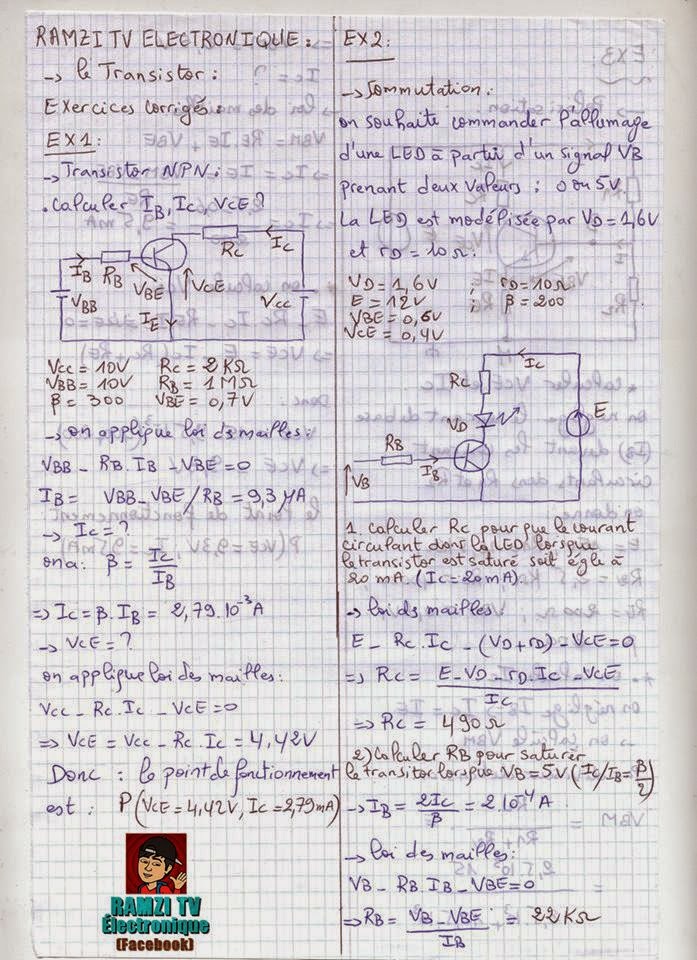 RAMZI TV ELECTRONIQUE:
→ le Transistor:
Exercices corrigés:
EX1:
→ Transistor NPN:
. Calculer IB, IC, VCE?
RC
IC
IB
RB
VBE
VCE
VBB
IE
VCC
VCC = 10V RC = 2 KΩ
VBB = 10V RB = 1 MΩ
β = 300 VBE = 0,7V
→ on applique loi ds mailles:
VBB - RB.IB - VBE = 0
IB = VBB-VBE/RB = 9,3 μA
→ IC = ?
on a: β = IC/IB
⇒ IC = β.IB = 2,79.10⁻³A
→ VCE = ?
on applique loi des mailles:
VCC - RC.IC - VCE = 0
⇒ VCE = VCC - RC.IC = 4,42V
Donc : le point de fonctionnement
est : P(VCE = 4,42V, IC = 2,79mA)
RAMZI TV
Électronique
(Facebook)
EX2:
→ Commutation:
on souhaite commander l'allumage
d'une LED à partir d'un signal VB
prenant deux valeurs ; 0 ou 5V
La LED est modélisée par VD = 1,6V
et rD = 10Ω.
VD = 1,6V ; rD = 10Ω
E = 12V ; β = 200
VBE = 0,6V
VCE = 0,4V
IC
RC
VD
E
RB
IB
VB
1. Calculer RC pour que le courant
circulant dans la LED lorsque
le transistor est saturé soit égle à
20 mA. (IC = 20mA).
→ loi ds mailles
E - RC.IC - (VD+rD) - VCE = 0
⇒ RC = E-VD-rD.IC-VCE/IC
⇒ RC = 490Ω
2) Calculer RB pour saturer
le transitor lorsque VB = 5V (IC/IB = β/2)
→ IB = 2IC/β = 2.10⁻⁴A
→ loi des mailles:
VB - RB.IB - VBE = 0
⇒ RB = VB-VBE/IB = 22KΩ